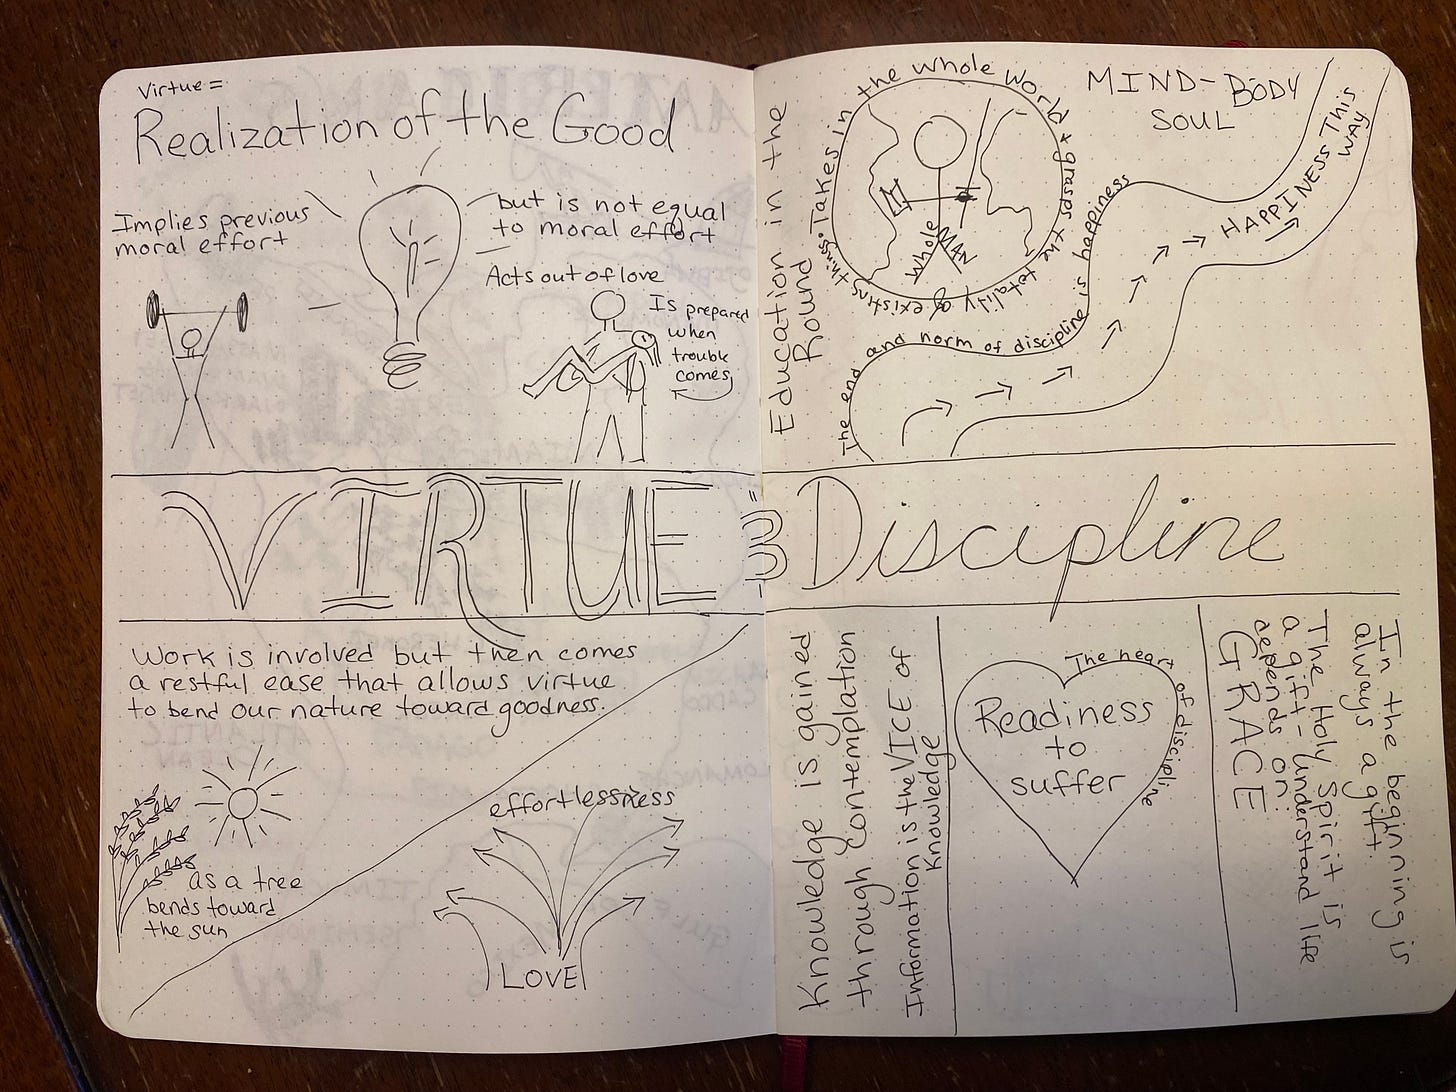 Virtue =
Realization of the Good
Implies previous
moral effort
but is not equal
to moral effort
Acts out of love
Is prepared
when
trouble
comes
VIRTUE
Work is involved but then comes
a restful ease that allows virtue
to bend our nature toward goodness.
as a tree
bends toward
the sun
effortlessness
LOVE
Education in the
Round
Takes in the whole world & grasps the totality of existing things.
Whole
MAN
MIND-BODY
SOUL
HAPPINESS This
WAY
The end and norm of discipline is happiness
& Discipline
Knowledge is gained
through Contemplation
Information is the VICE of
Knowledge
The heart of discipline
Readiness
to
suffer
In the beginning is
always a gift.
The Holy Spirit is
a gift - understand life
depends on
GRACE